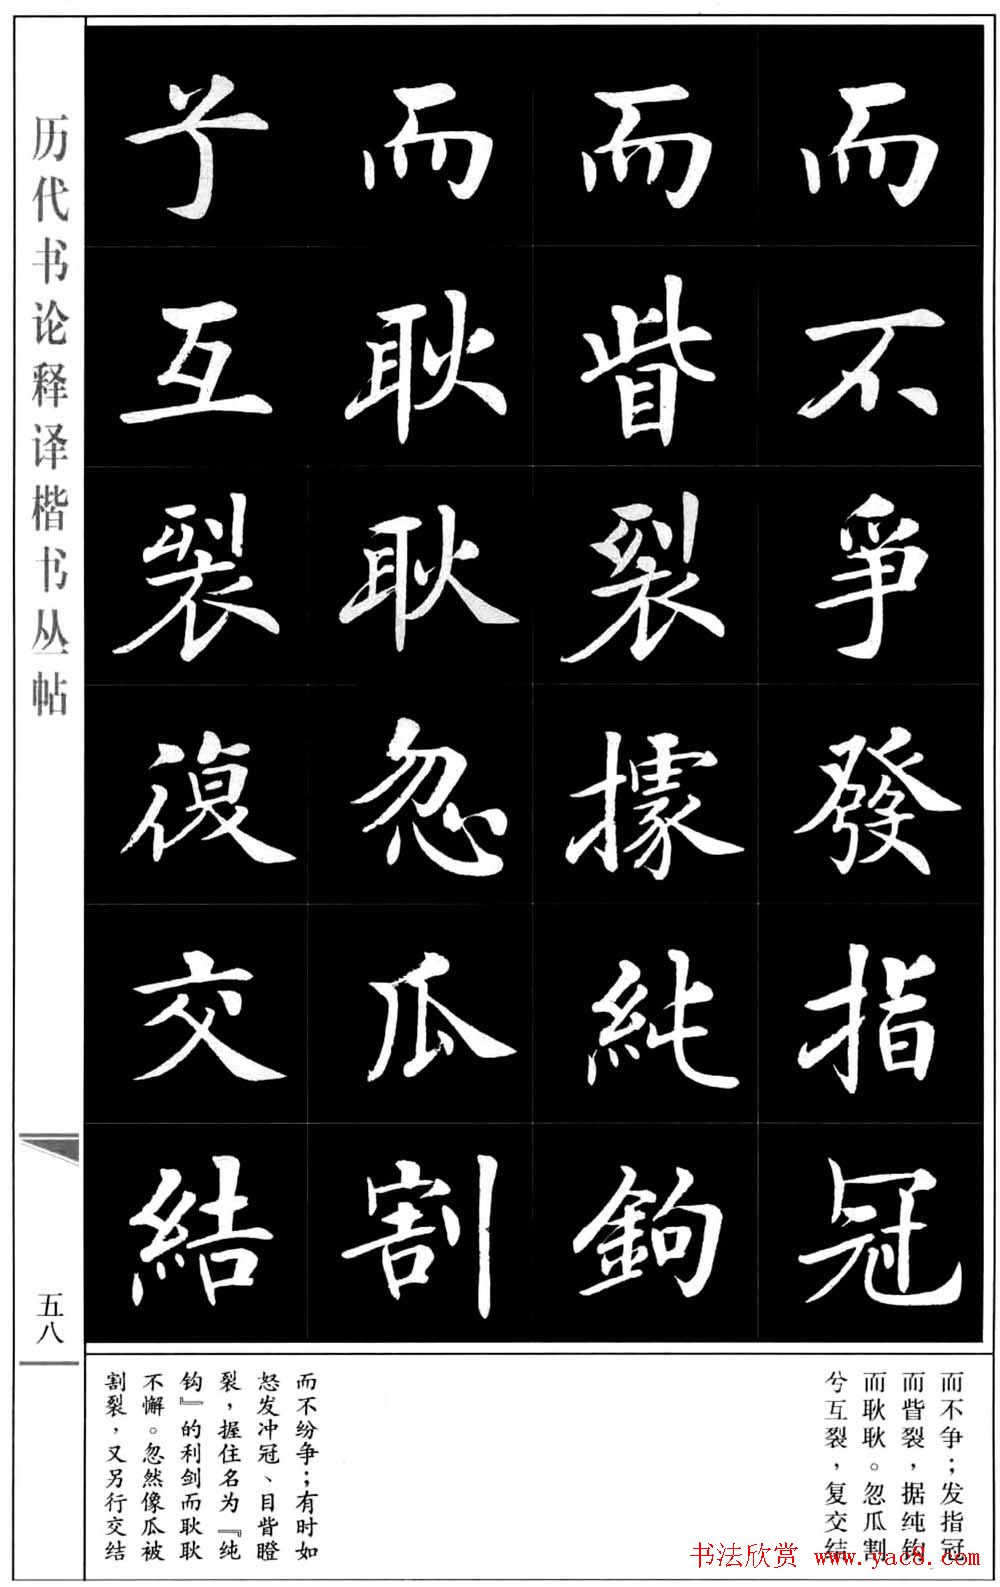 历代书论释译楷书丛帖
五八
而不爭發指冠
而眥裂據純鉤
而耿耿忽瓜割
兮互裂復交結
而不争；发指冠
而眥裂，据纯钩
而耿耿。忽瓜割
兮互裂，复交结
而不纷争；有时如
怒发冲冠、目眥瞪
裂，握住名为『纯
钩』的利剑而耿耿
不懈。忽然像瓜被
割裂，又另行交结
书法欣赏 www.yac8.com